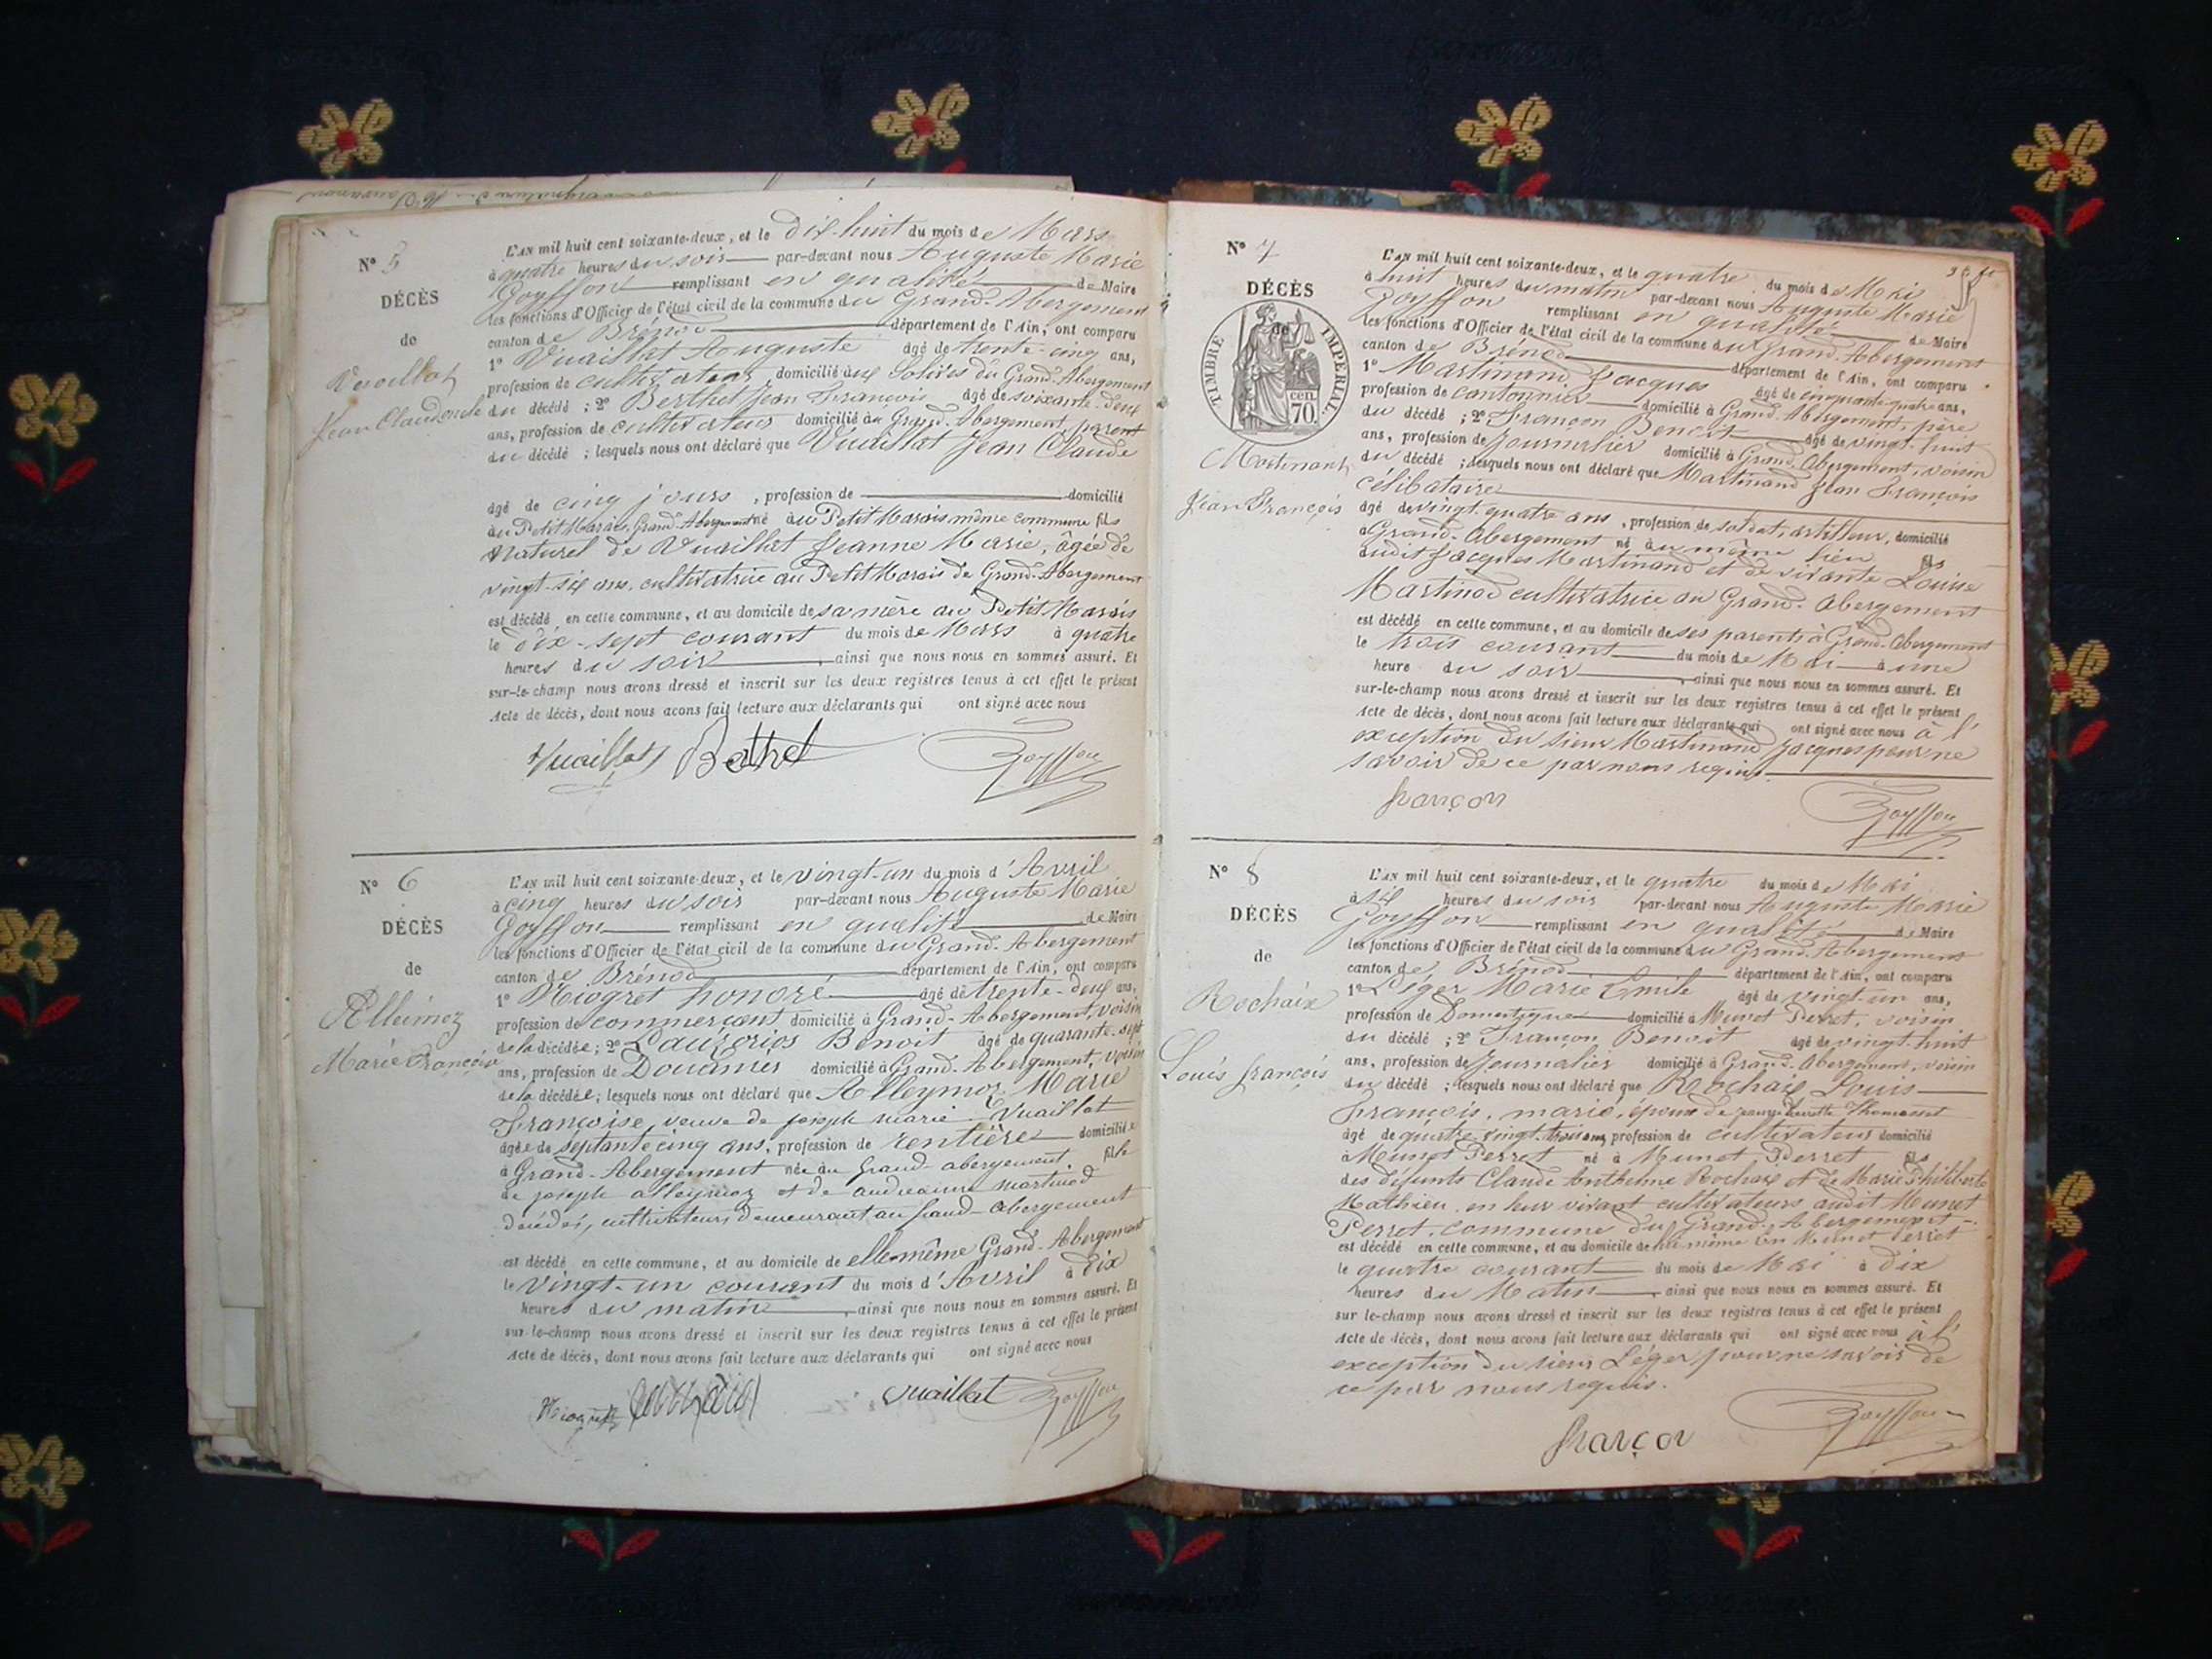 N° 5
DÉCÈS
de
Vuaillat
Jean Claude
L'AN mil huit cent soixante-deux, et le dix-huit du mois de Mars
à quatre heures du soir par-devant nous Auguste Marie
Goyffon remplissant en qualité de Maire
les fonctions d'Officier de l'état civil de la commune du Grand-Abergement
canton de Brénod département de l'Ain, ont comparu
1° Vuaillat Auguste âgé de trente-cinq ans,
profession de cultivateur domicilié aux Solives du Grand Abergement
du décédé ; 2° Berthet Jean François âgé de soixante-deux
ans, profession de cultivateur domicilié au Grand-Abergement, parent
du décédé ; lesquels nous ont déclaré que Vuaillat Jean Claude
âgé de cinq jours , profession de domicilié
au Petit Marais, Grand-Abergement né au Petit Marais même commune fils
naturel de Vuaillat Jeanne Marie, âgée de
vingt-six ans, cultivatrice au Petit Marais de Grand-Abergement
est décédé en cette commune, et au domicile de sa mère au Petit Marais
le dix-sept courant du mois de Mars à quatre
heures du soir , ainsi que nous nous en sommes assuré. Et
sur-le-champ nous avons dressé et inscrit sur les deux registres tenus à cet effet le présent
Acte de décès, dont nous avons fait lecture aux déclarants qui ont signé avec nous
Vuaillat Bethet Goyffon
N° 6
DÉCÈS
de
Alleimoz
Marie Françoise
L'AN mil huit cent soixante-deux, et le vingt-un du mois d'Avril
à cinq heures du soir par-devant nous Auguste Marie
Goyffon remplissant en qualité de Maire
les fonctions d'Officier de l'état civil de la commune du Grand-Abergement
canton de Brénod département de l'Ain, ont comparu
1° Niogret honoré âgé de trente-deux ans,
profession de commerçant domicilié à Grand-Abergement, voisin
de la décédée ; 2° Benoit âgé de quarante-sept
ans, profession de Douanier domicilié à Grand-Abergement, voisin
de la décédée ; lesquels nous ont déclaré que Alleymoz Marie
Françoise, veuve de joseph marie Vuaillat
âgée de septante cinq ans, profession de rentière domiciliée
à Grand-Abergement née au Grand-abergement, fille
de joseph alleymoz et de andréanne martinod
décédés, cultivateurs demeurant au Grand-abergement
est décédé en cette commune, et au domicile de elle même Grand-Abergement
le vingt-un courant du mois d'Avril à dix
heures du matin , ainsi que nous nous en sommes assuré. Et
sur-le-champ nous avons dressé et inscrit sur les deux registres tenus à cet effet le présent
Acte de décès, dont nous avons fait lecture aux déclarants qui ont signé avec nous
Niogret Vuaillat Goyffon
N° 7
DÉCÈS
de
TIMBRE IMPÉRIAL.
70 cen.
Martinand
Jean François
L'AN mil huit cent soixante-deux, et le quatre du mois de Mai
à huit heures du matin par-devant nous Auguste Marie
Goyffon remplissant en qualité de Maire
les fonctions d'Officier de l'état civil de la commune du Grand-Abergement
canton de Brénod département de l'Ain, ont comparu
1° Martinand Jacques âgé de cinquante-quatre ans,
profession de cantonnier domicilié à Grand-Abergement, père
du décédé ; 2° Françon Benoit âgé de vingt-huit
ans, profession de Journalier domicilié à Grand-Abergement, voisin
du décédé ; lesquels nous ont déclaré que Martinand Jean François
célibataire
âgé de vingt-quatre ans , profession de soldat, artilleur, domicilié
à Grand-Abergement né au même lieu fils
dudit Jacques Martinand et de vivante Louise
Martinod cultivatrice au Grand-Abergement
est décédé en cette commune, et au domicile de ses parents à Grand-Abergement
le trois courant du mois de Mai à une
heure du soir , ainsi que nous nous en sommes assuré. Et
sur-le-champ nous avons dressé et inscrit sur les deux registres tenus à cet effet le présent
Acte de décès, dont nous avons fait lecture aux déclarants qui ont signé avec nous à l'
exception du sieur Martinand Jacques pour ne
savoir de ce par nous requis.
françon Goyffon
N° 8
DÉCÈS
de
Rochaix
Louis françois
L'AN mil huit cent soixante-deux, et le quatre du mois de Mai
à six heures du soir par-devant nous Auguste Marie
Goyffon remplissant en qualité de Maire
les fonctions d'Officier de l'état civil de la commune du Grand-Abergement
canton de Brénod département de l'Ain, ont comparu
1° Léger Marie Emile âgé de vingt-un ans,
profession de Domestique domicilié à Munet Perret, voisin
du décédé ; 2° Françon Benoit âgé de vingt-huit
ans, profession de Journalier domicilié à Grand-Abergement, voisin
du décédé ; lesquels nous ont déclaré que Rochaix Louis
François, marié, époux de Thomasset
âgé de quatre-vingt-trois ans, profession de cultivateur domicilié
à Munet Perret né à Munet Perret fils
des défunts Claude Anthelme Rochaix et de Marie Philiberte
Mathieu en leur vivant cultivateurs audit Munet
Perret, commune du Grand-Abergement
est décédé en cette commune, et au domicile de lui même en Munet Perret
le quatre courant du mois de Mai à dix
heures du Matin , ainsi que nous nous en sommes assuré. Et
sur le-champ nous avons dressé et inscrit sur les deux registres tenus à cet effet le présent
Acte de décès, dont nous avons fait lecture aux déclarants qui ont signé avec nous à l'
exception du sieur Léger pour ne savoir de
ce par nous requis.
françon Goyffon